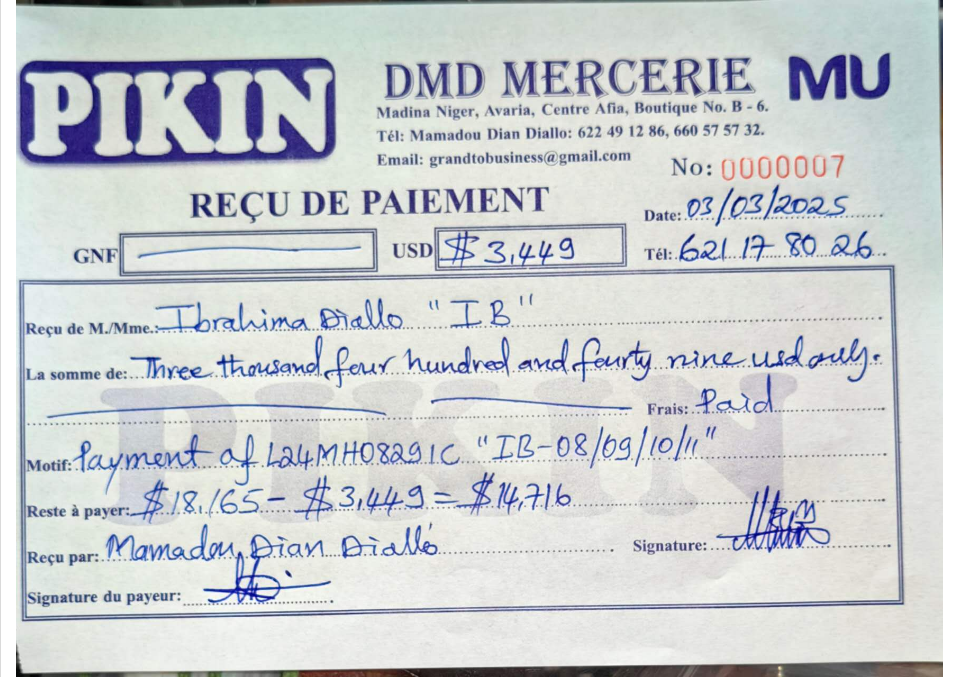 PIKIN
DMD MERCERIE
MU
Madina Niger, Avaria, Centre Afia, Boutique No. B - 6.
Tél: Mamadou Dian Diallo: 622 49 12 86, 660 57 57 32.
Email: grandtobusiness@gmail.com
No: 0000007
REÇU DE PAIEMENT
Date: 03/03/2025
GNF
USD $ 3,449
Tél: 621 17 80 26
Reçu de M./Mme.: Ibrahima Diallo "IB"
La somme de: Three thousand four hundred and fourty nine usd only.
Frais: Paid
Motif: Payment of L24MH08291C "IB-08/09/10/11"
Reste à payer: $18,165 - $3,449 = $14,716
Reçu par: Mamadou Dian Diallo
Signature:
Signature du payeur:
PIKIN